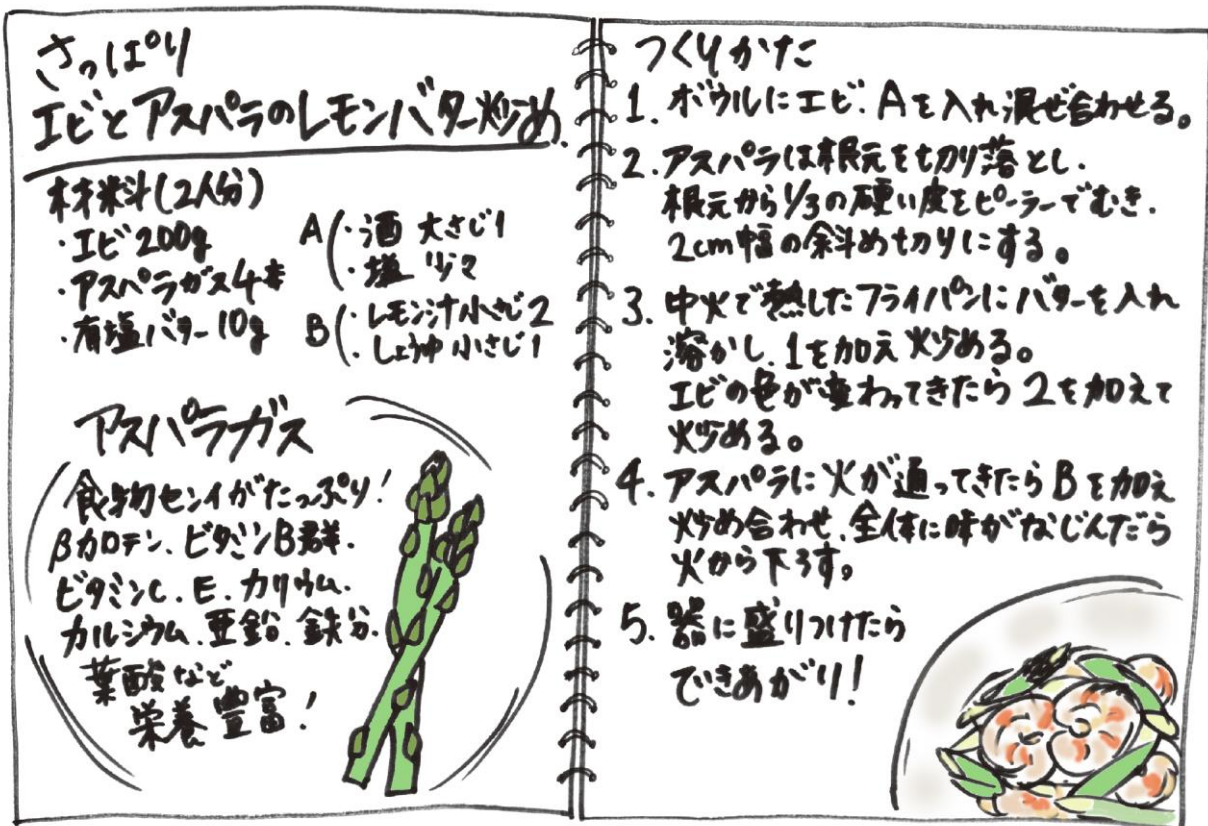 さっぱり
エビとアスパラのレモンバター炒め
材料(2人分)
・エビ200g
・アスパラガス4本
・有塩バター10g
A(・酒 大さじ1
・塩 少々
B(・レモン汁小さじ2
・しょうゆ 小さじ1
アスパラガス
食物センイがたっぷり!
βカロテン、ビタミンB群、
ビタミンC、E、カリウム、
カルシウム、亜鉛、鉄分、
葉酸など
栄養豊富!
つくりかた
1. ボウルにエビ、Aを入れ混ぜ合わせる。
2. アスパラは根元を切り落とし、
根元から1/3の硬い皮をピーラーでむき、
2cm幅の斜め切りにする。
3. 中火で熱したフライパンにバターを入れ
溶かし、1を加え炒める。
エビの色が変わってきたら2を加えて
炒める。
4. アスパラに火が通ってきたらBを加え
炒め合わせ、全体に味がなじんだら
火から下ろす。
5. 器に盛りつけたら
できあがり!